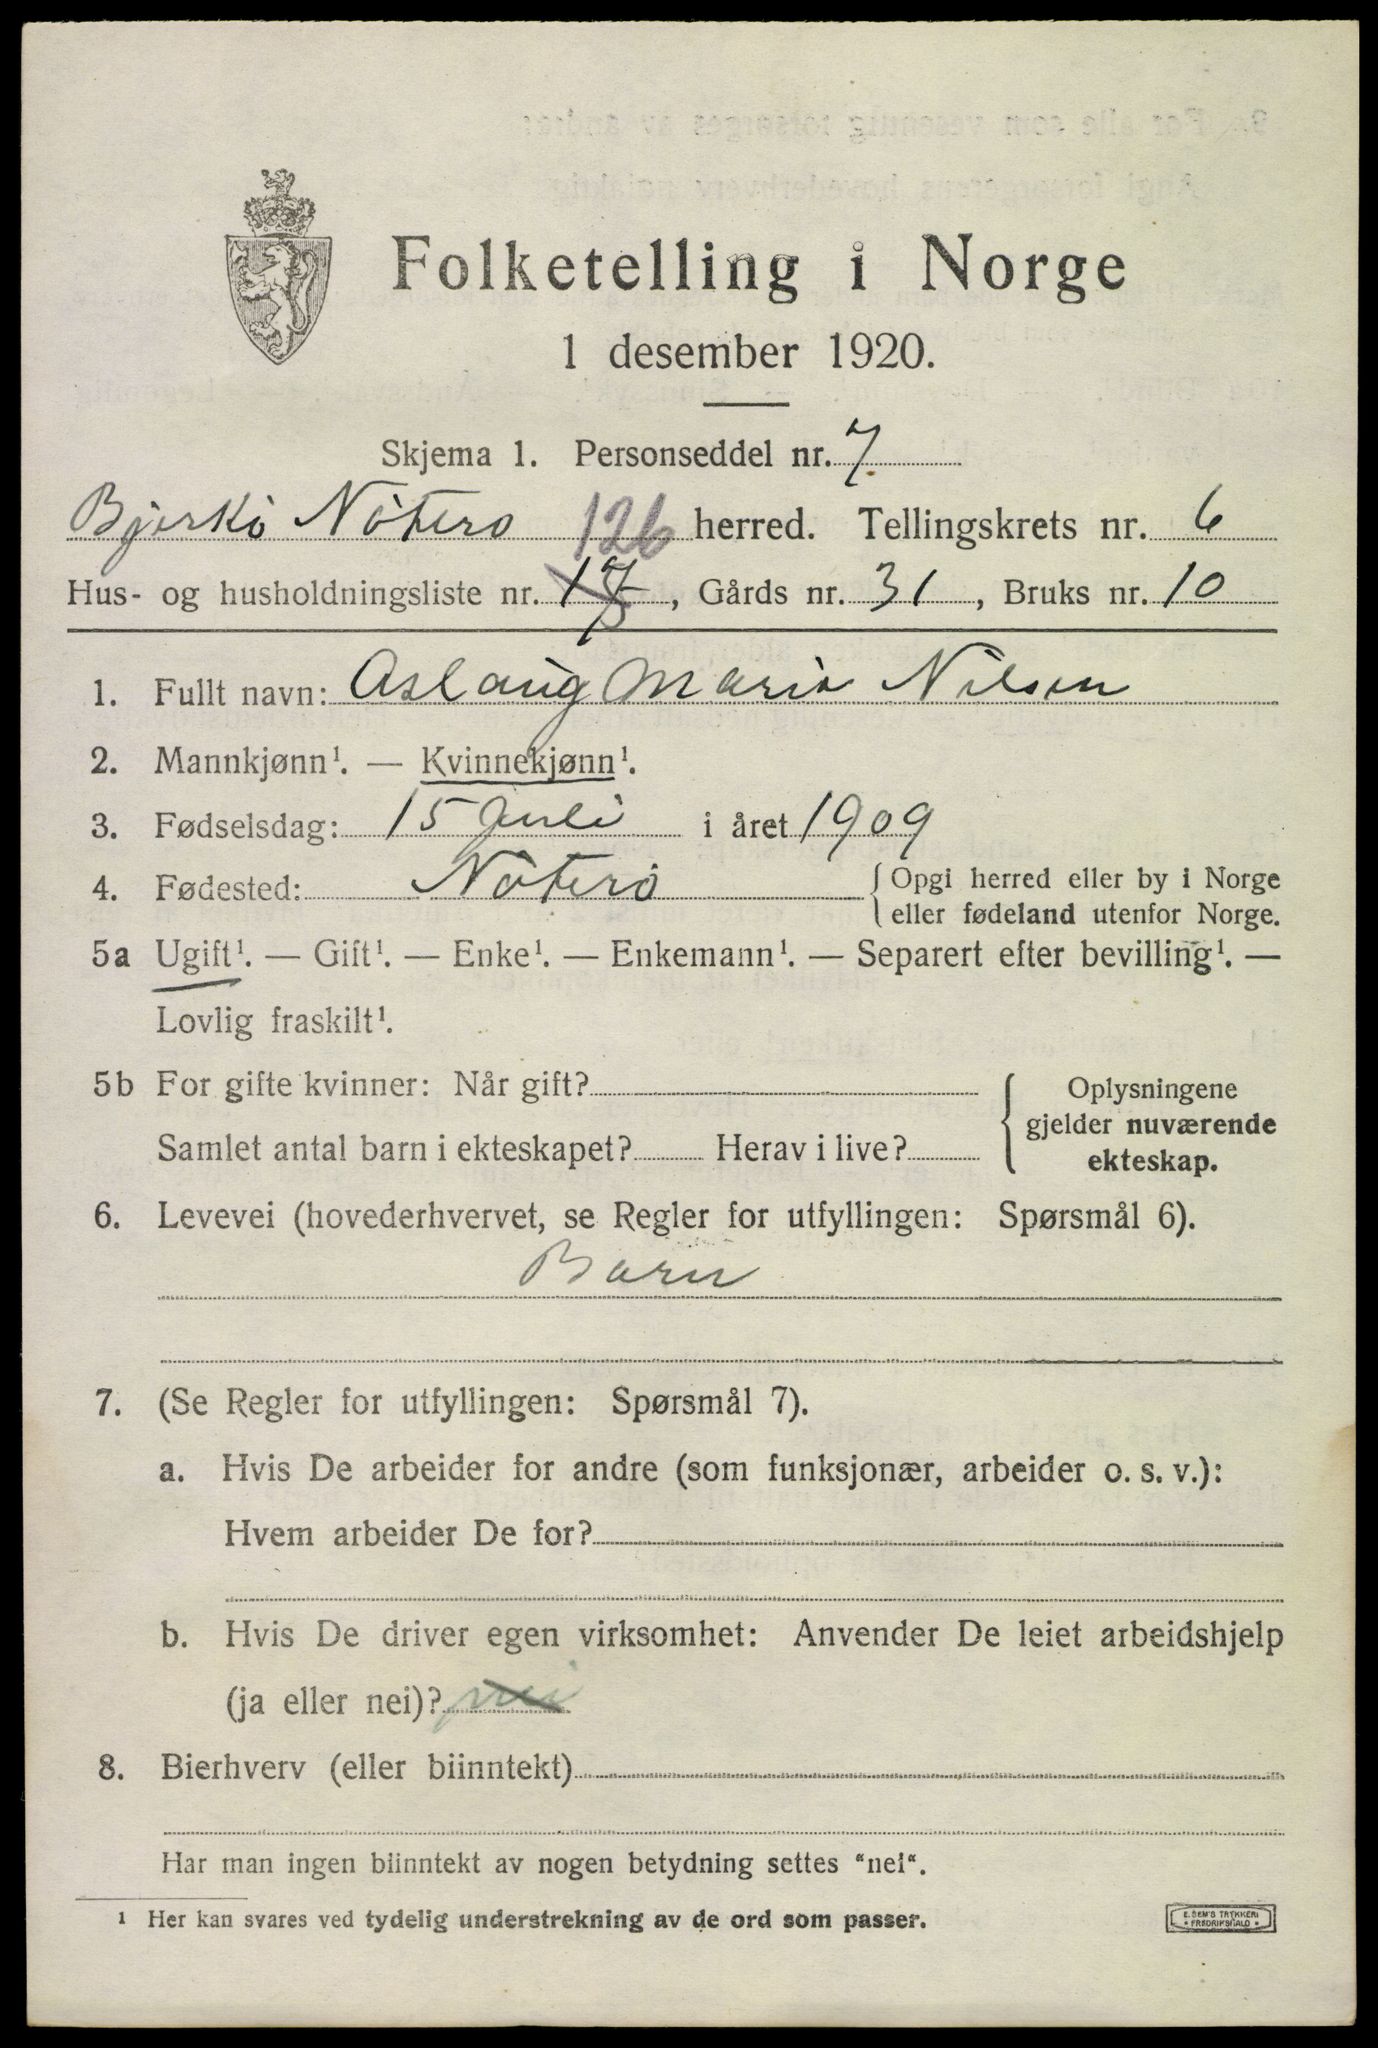 Folketelling i Norge
1 desember 1920.
Skjema 1. Personseddel nr. 7.
Bjerkö Nöterö 126 herred. Tellingskrets nr. 6
Hus- og husholdningsliste nr. 17, Gårds nr. 31, Bruks nr. 10
1. Fullt navn: Aslaug Marie Nilsen
2. Mannkjønn¹. — Kvinnekjønn¹.
3. Fødselsdag: 15 Juli i året 1909
4. Fødested: Nöterö { Opgi herred eller by i Norge
eller fødeland utenfor Norge.
5a Ugift¹. — Gift¹. — Enke¹. — Enkemann¹. — Separert efter bevilling¹. —
Lovlig fraskilt¹.
5b For gifte kvinner: Når gift? { Oplysningene
gjelder nuværende
Samlet antal barn i ekteskapet? Herav i live?
ekteskap.
6. Levevei (hovederhvervet, se Regler for utfyllingen: Spørsmål 6).
Barn
7. (Se Regler for utfyllingen: Spørsmål 7).
a. Hvis De arbeider for andre (som funksjonær, arbeider o. s. v.):
Hvem arbeider De for?
b. Hvis De driver egen virksomhet: Anvender De leiet arbeidshjelp
(ja eller nei)? nei
8. Bierhverv (eller biinntekt)
Har man ingen biinntekt av nogen betydning settes "nei".
¹ Her kan svares ved tydelig understrekning av de ord som passer.
E. SEM'S TRYKKERI
FREDRIKSHALD